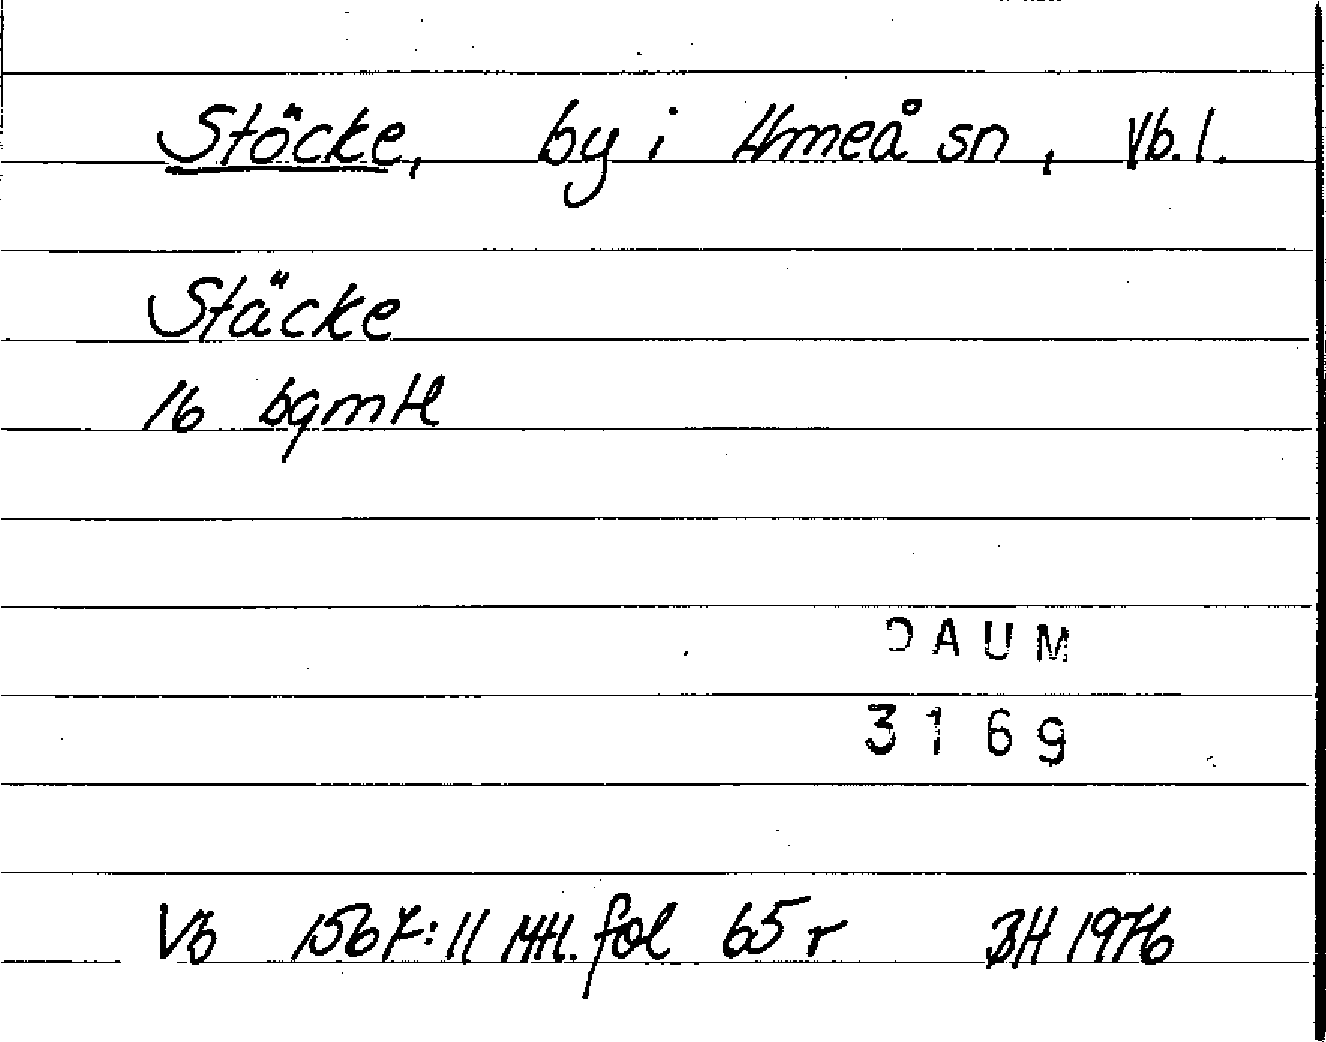 Stöcke, by i Umeå sn, Vb. l.
Stäcke
16 bgmtl
DAUM
3169
Vb 1567:11 MH. fol 65 r BH 1976